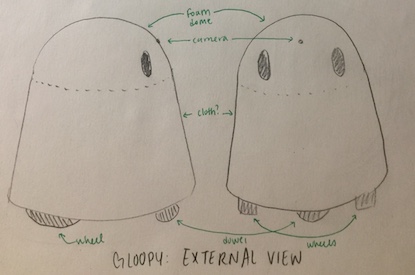 foam
dome
camera
cloth?
wheel
dowel
wheels
GLOOPY: EXTERNAL VIEW